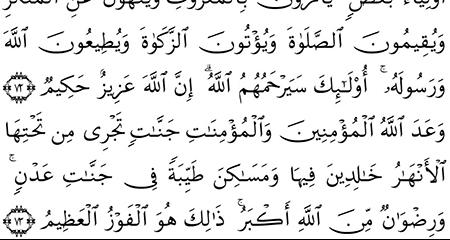 أَوْلِيَآءُ بَعْضٖ يَأْمُرُونَ بِالْمَعْرُوفِ وَيَنْهَوْنَ عَنِ الْمُنكَرِ
وَيُقِيمُونَ اَ۬لصَّلَوٰةَ وَيُؤْتُونَ اَ۬لزَّكَوٰةَ وَيُطِيعُونَ اَ۬للَّهَ
وَرَسُولَهُۥٓۖ أُوْلَٰٓئِكَ سَيَرْحَمُهُمُ اُ۬للَّهُۖ إِنَّ اَ۬للَّهَ عَزِيزٌ حَكِيمٞ ٧٢
وَعَدَ اَ۬للَّهُ اُ۬لْمُؤْمِنِينَ وَالْمُؤْمِنَٰتِ جَنَّٰتٖ تَجْرِي مِن تَحْتِهَا
اَ۬لْأَنْهَٰرُ خَٰلِدِينَ فِيهَا وَمَسَٰكِنَ طَيِّبَةٗ فِي جَنَّٰتِ عَدْنٖۖ
وَرِضْوَٰنٞ مِّنَ اَ۬للَّهِ أَكْبَرُۖ ذَٰلِكَ هُوَ اَ۬لْفَوْزُ اُ۬لْعَظِيمُ ٧٣